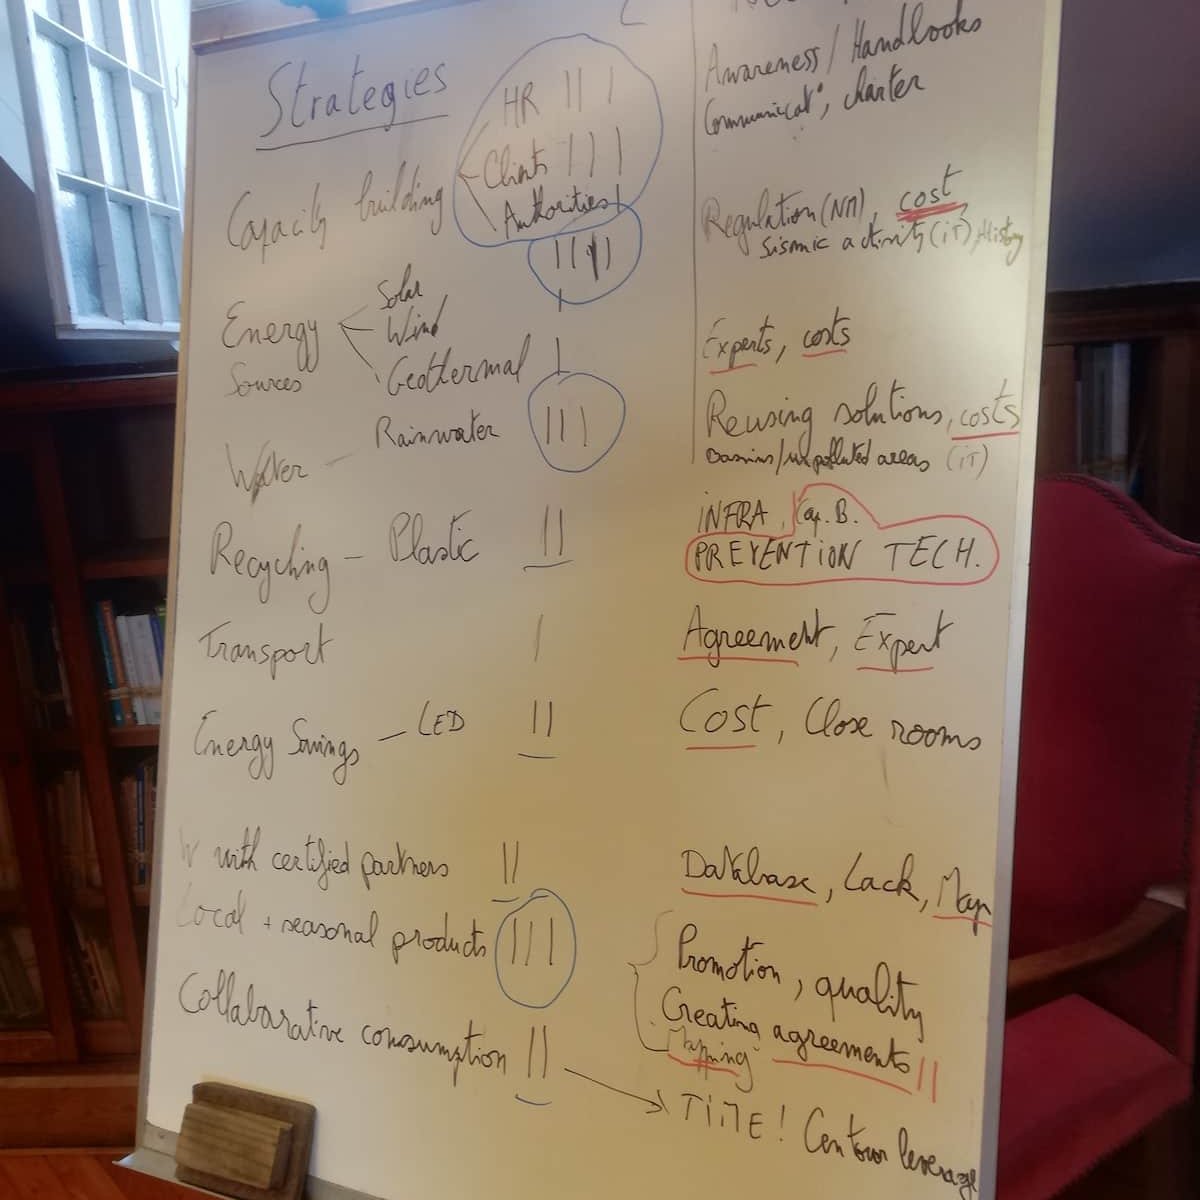 Strategies
HR || |
Clients |||
Capacity building
Authorities |
Awareness / Handbooks
Communicat°, charter
Energy Sources
Solar ||||
Wind |
Geothermal |
Regulation (NM), cost,
Seismic activity (iT), History
Experts, costs
Water - Rainwater |||
Reusing solutions, costs
Basins/unpolluted areas (iT)
Recycling - Plastic ||
iNFRA, Cap. B.
PREVENTION TECH.
Transport |
Agreement, Expert
Energy Savings - LED ||
Cost, Close rooms
W with certified partners ||
Database, Lack, Map
Local + seasonal products |||
Promotion, quality
Creating agreements ||
Mapping
Collabarative consumption ||
TiME! Contour leverage